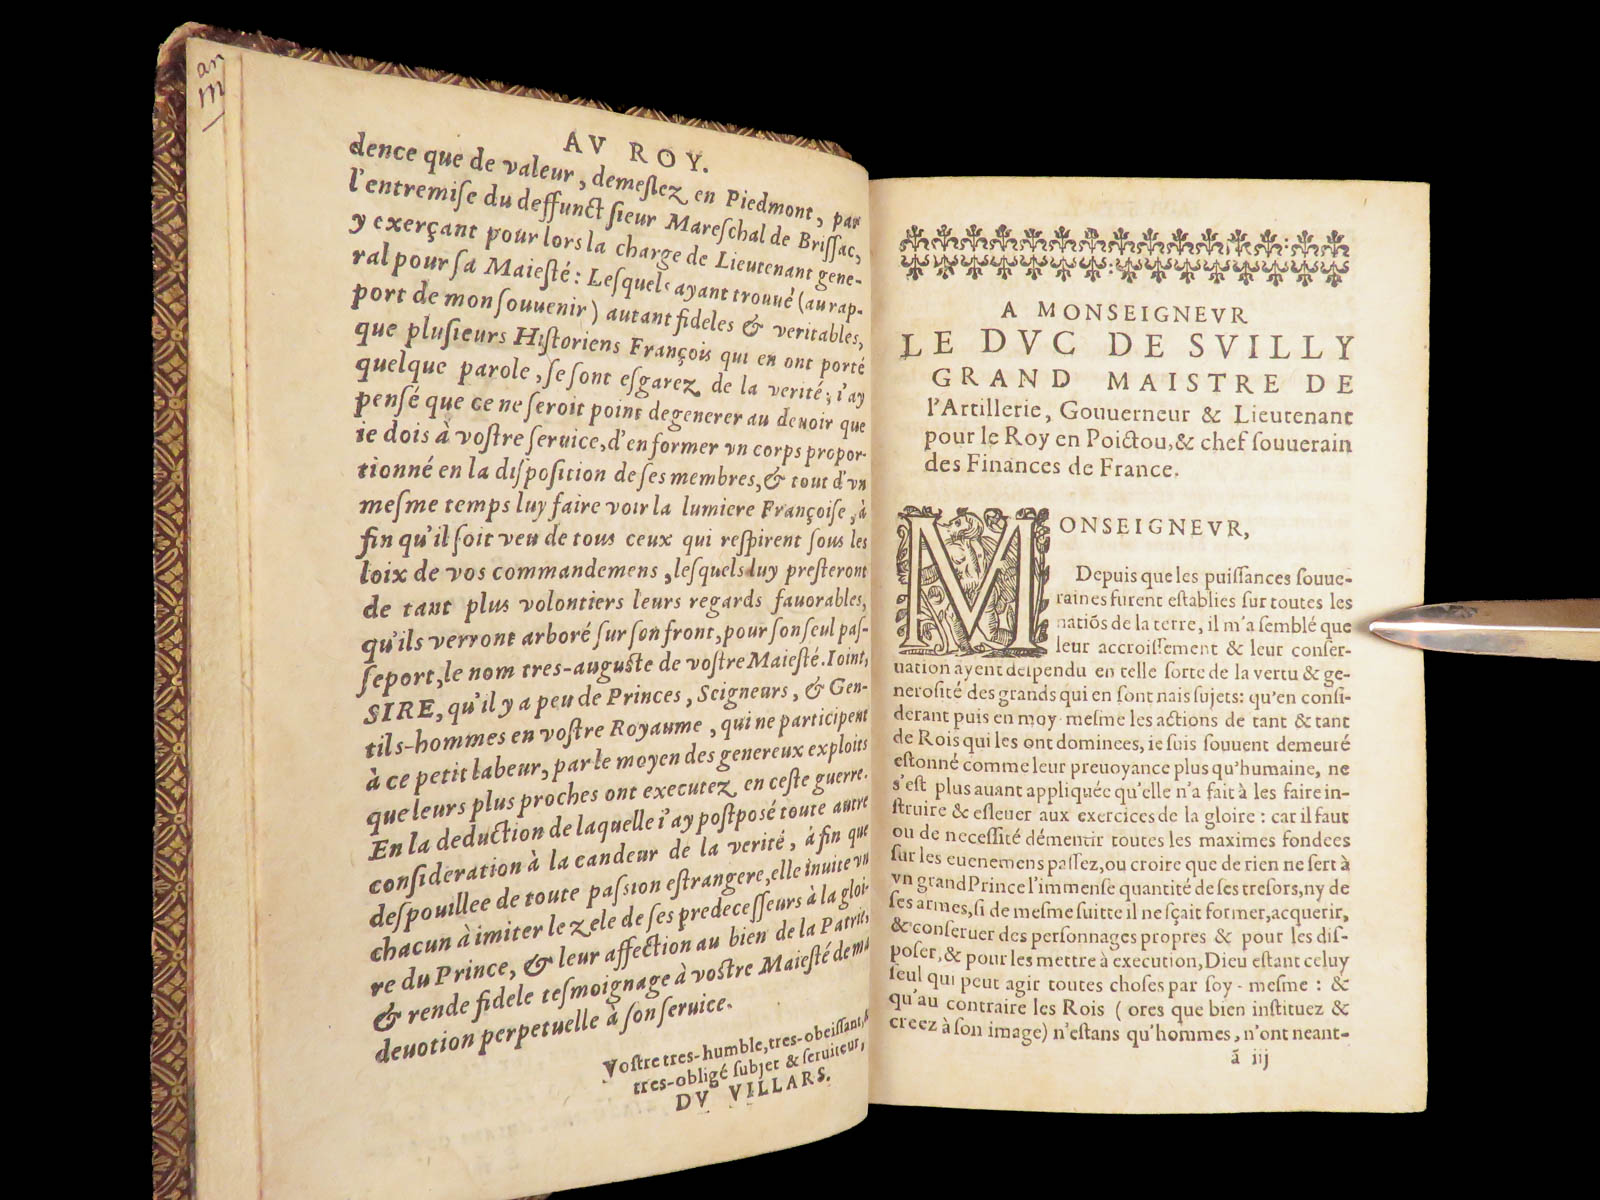 an
m
AV ROY.
dence que de valeur, demeſlez en Piedmont, par
l'entremiſe du deffunct ſieur Mareſchal de Briſſac,
y exerçant pour lors la charge de Lieutenant gene-
ral pour ſa Maieſté: Leſquels ayant trouué (au rap-
port de mon ſouuenir) autant fideles & veritables,
que pluſieurs Hiſtoriens François qui en ont porté
quelque parole, ſe ſont eſgarez de la verité; i'ay
penſé que ce ne ſeroit point degenerer au deuoir que
ie dois à voſtre ſeruice, d'en former vn corps propor-
tionné en la diſpoſition de ſes membres, & tout d'vn
meſme temps luy faire voir la lumiere Françoiſe, à
fin qu'il ſoit veu de tous ceux qui reſpirent ſous les
loix de vos commandemens, leſquels luy preſteront
de tant plus volontiers leurs regards fauorables,
qu'ils verront arboré ſur ſon front, pour ſon ſeul paſ-
ſeport, le nom tres-auguſte de voſtre Maieſté. Ioint,
SIRE, qu'il y a peu de Princes, Seigneurs, & Gen-
tils-hommes en voſtre Royaume, qui ne participent
à ce petit labeur, par le moyen des genereux exploits
que leurs plus proches ont executez en ceſte guerre.
En la deduction de laquelle i'ay poſtpoſé toute autre
conſideration à la candeur de la verité, à fin que
deſpouillee de toute paſſion eſtrangere, elle inuite vn
chacun à imiter le zele de ſes predeceſſeurs à la gloi-
re du Prince, & leur affection au bien de la Patrie,
& rende fidele teſmoignage à voſtre Maieſté de ma
deuotion perpetuelle à ſon ſeruice.
Voſtre tres-humble, tres-obeiſſant, &
tres-obligé ſubjet & ſeruiteur,
DV VILLARS.
A MONSEIGNEVR
LE DVC DE SVILLY
GRAND MAISTRE DE
l'Artillerie, Gouuerneur & Lieutenant
pour le Roy en Poictou, & chef ſouuerain
des Finances de France.
MONSEIGNEVR,
Depuis que les puiſſances ſouue-
raines furent eſtablies ſur toutes les
natiõs de la terre, il m'a ſemblé que
leur accroiſſement & leur conſer-
uation ayent deſpendu en telle ſorte de la vertu & ge-
neroſité des grands qui en ſont nais ſujets: qu'en conſi-
derant puis en moy-meſme les actions de tant & tant
de Rois qui les ont dominees, ie ſuis ſouuent demeuré
eſtonné comme leur preuoyance plus qu'humaine, ne
s'eſt plus auant appliquée qu'elle n'a fait à les faire in-
ſtruire & eſleuer aux exercices de la gloire: car il faut
ou de neceſſité démentir toutes les maximes fondees
ſur les euenemens paſſez, ou croire que de rien ne ſert à
vn grand Prince l'immenſe quantité de ſes treſors, ny de
ſes armes, ſi de meſme ſuitte il ne ſçait former, acquerir,
& conſeruer des perſonnages propres & pour les diſ-
poſer, & pour les mettre à execution, Dieu eſtant celuy
ſeul qui peut agir toutes choſes par ſoy-meſme: &
qu'au contraire les Rois (ores que bien inſtituez &
creez à ſon image) n'eſtans qu'hommes, n'ont neant-
ã iij